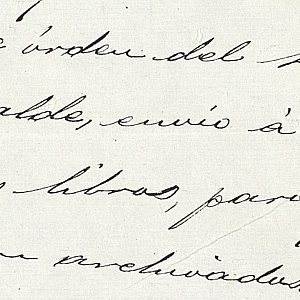 órden del
alde, envío á
libros, para
archivados